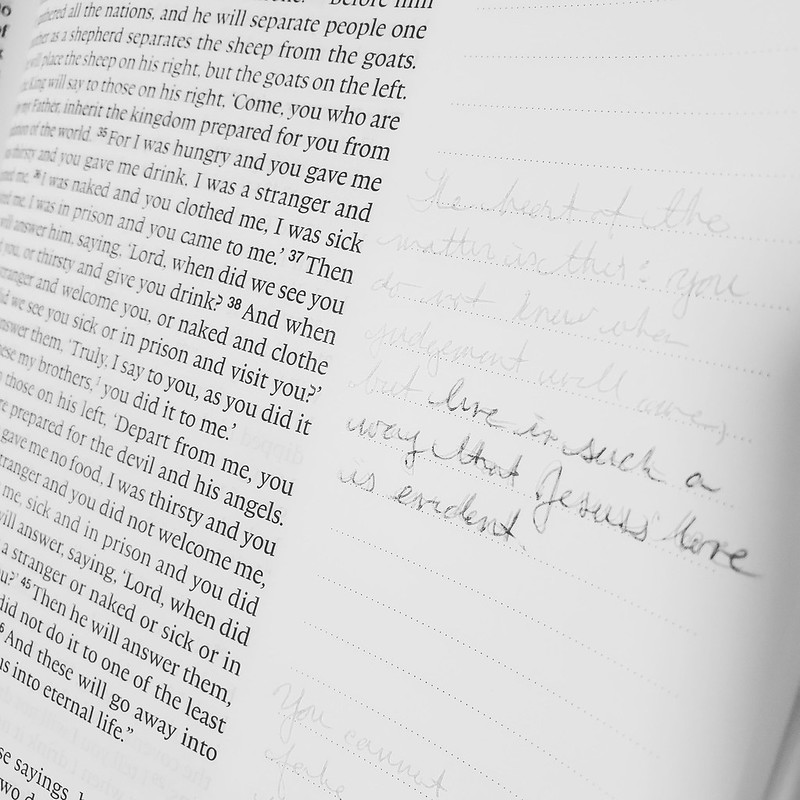 Before him
gathered all the nations, and he will separate people one
as a shepherd separates the sheep from the goats.
will place the sheep on his right, but the goats on the left.
King will say to those on his right, ‘Come, you who are
by my Father, inherit the kingdom prepared for you from
of the world. 35 For I was hungry and you gave me
thirsty and you gave me drink, I was a stranger and
me, 36 I was naked and you clothed me, I was sick
me, I was in prison and you came to me.’ 37 Then
will answer him, saying, ‘Lord, when did we see you
you, or thirsty and give you drink? 38 And when
stranger and welcome you, or naked and clothe
did we see you sick or in prison and visit you?’
answer them, ‘Truly, I say to you, as you did it
these my brothers, you did it to me.’
those on his left, ‘Depart from me, you
prepared for the devil and his angels.
gave me no food, I was thirsty and you
stranger and you did not welcome me,
me, sick and in prison and you did
will answer, saying, ‘Lord, when did
a stranger or naked or sick or in
you?’ 45 Then he will answer them,
did not do it to one of the least
And these will go away into
into eternal life.”
sayings,
two
The heart of the
matter is this: you
do not know when
judgement will come,
but live in such a
way that Jesus' love
is evident.
You cannot